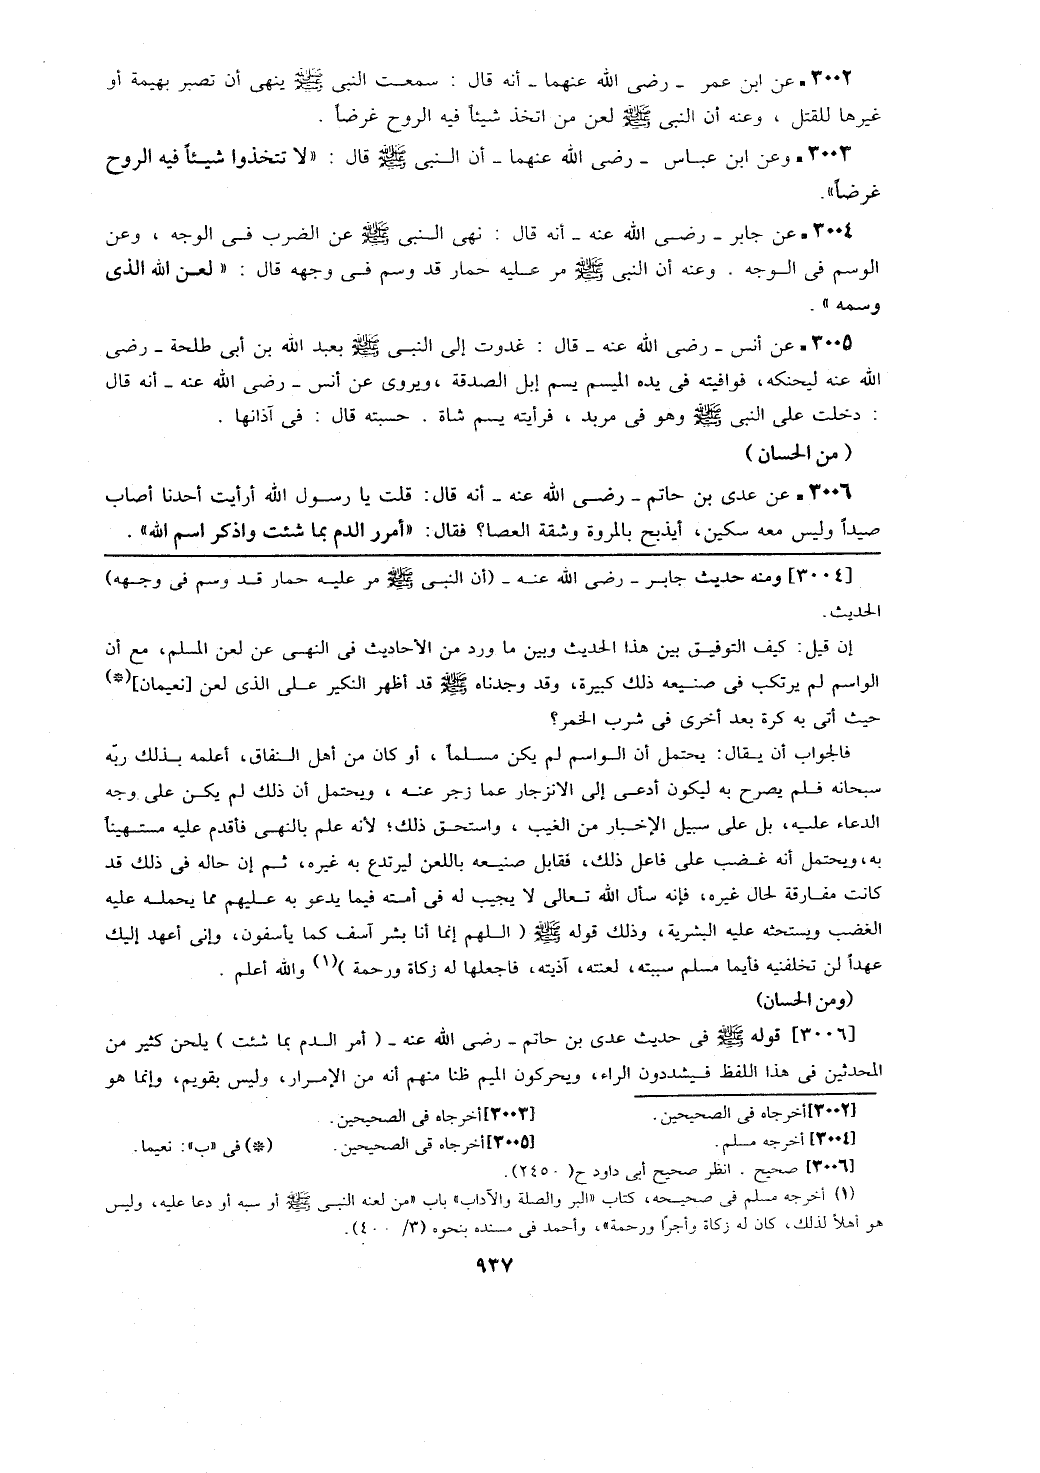 ٣٠٠٢ ـ عن ابن عمر ـ رضى الله عنهما ـ أنه قال : سمعت النبى ﷺ ينهى أن تصبر بهيمة أو
غيرها للقتل ، وعنه أن النبى ﷺ لعن من اتخذ شيئاً فيه الروح غرضاً .
٣٠٠٣ ـ وعن ابن عباس ـ رضى الله عنهما ـ أن النبى ﷺ قال : «لا تتخذوا شيئاً فيه الروح
غرضاً».
٣٠٠٤ ـ عن جابر ـ رضى الله عنه ـ أنه قال : نهى النبى ﷺ عن الضرب فى الوجه ، وعن
الوسم فى الوجه . وعنه أن النبى ﷺ مر عليه حمار قد وسم فى وجهه قال : « لعن الله الذى
وسمه » .
٣٠٠٥ ـ عن أنس ـ رضى الله عنه ـ قال : غدوت إلى النبى ﷺ بعبد الله بن أبى طلحة ـ رضى
الله عنه ليحنكه، فوافيته فى يده الميسم يسم إبل الصدقة ،ويروى عن أنس ـ رضى الله عنه ـ أنه قال
: دخلت على النبى ﷺ وهو فى مربد ، فرأيته يسم شاة . حسبته قال : فى آذانها .
( من الحسان )
٣٠٠٦ ـ عن عدى بن حاتم ـ رضى الله عنه ـ أنه قال: قلت يا رسول الله أرأيت أحدنا أصاب
صيداً وليس معه سكين، أيذبح بالمروة وشقة العصا؟ فقال: «أمرر الدم بما شئت واذكر اسم الله» .
[٣٠٠٤] ومنه حديث جابر ـ رضى الله عنه ـ (أن النبى ﷺ مر عليه حمار قد وسم فى وجهه)
الحديث.
إن قيل: كيف التوفيق بين هذا الحديث وبين ما ورد من الأحاديث فى النهى عن لعن المسلم، مع أن
الواسم لم يرتكب فى صنيعه ذلك كبيرة، وقد وجدناه ﷺ قد أظهر النكير على الذى لعن [نعيمان](*)
حيث أتى به كرة بعد أخرى فى شرب الخمر؟
فالجواب أن يقال: يحتمل أن الواسم لم يكن مسلماً ، أو كان من أهل النفاق، أعلمه بذلك ربّه
سبحانه فلم يصرح به ليكون أدعى إلى الانزجار عما زجر عنه ، ويحتمل أن ذلك لم يكن على وجه
الدعاء عليه، بل على سبيل الإخبار من الغيب ، واستحق ذلك؛ لأنه علم بالنهى فأقدم عليه مستهيناً
به،ويحتمل أنه غضب على فاعل ذلك، فقابل صنيعه باللعن ليرتدع به غيره، ثم إن حاله فى ذلك قد
كانت مفارقة لحال غيره، فإنه سأل الله تعالى لا يجيب له فى أمته فيما يدعو به عليهم مما يحمله عليه
الغضب ويستحثه عليه البشرية، وذلك قوله ﷺ ( اللهم إنما أنا بشر آسف كما يأسفون، وإنى أعهد إليك
عهداً لن تخلفنيه فأيما مسلم سببته، لعنته، آذيته، فاجعلها له زكاة ورحمة )(١) والله أعلم .
(ومن الحسان)
[٣٠٠٦] قوله ﷺ فى حديث عدى بن حاتم ـ رضى الله عنه ـ ( أمر الدم بما شئت ) يلحن كثير من
المحدثين فى هذا اللفظ فيشددون الراء، ويحركون الميم ظنا منهم أنه من الإمرار، وليس بقويم، وإنما هو
[٣٠٠٢] أخرجاه فى الصحيحين. [٣٠٠٣] أخرجاه فى الصحيحين.
[٣٠٠٤] أخرجه مسلم. [٣٠٠٥] أخرجاه فى الصحيحين. (*) فى «ب»: نعيما.
[٣٠٠٦] صحيح . انظر صحيح أبى داود ح( ٢٤٥٠).
(١) أخرجه مسلم فى صحيحه، كتاب «البر والصلة والآداب» باب «من لعنه النبى ﷺ أو سبه أو دعا عليه، وليس
هو أهلاً لذلك، كان له زكاة وأجرًا ورحمة»، وأحمد فى مسنده بنحوه (٣/ ٤٠٠).
٩٣٧